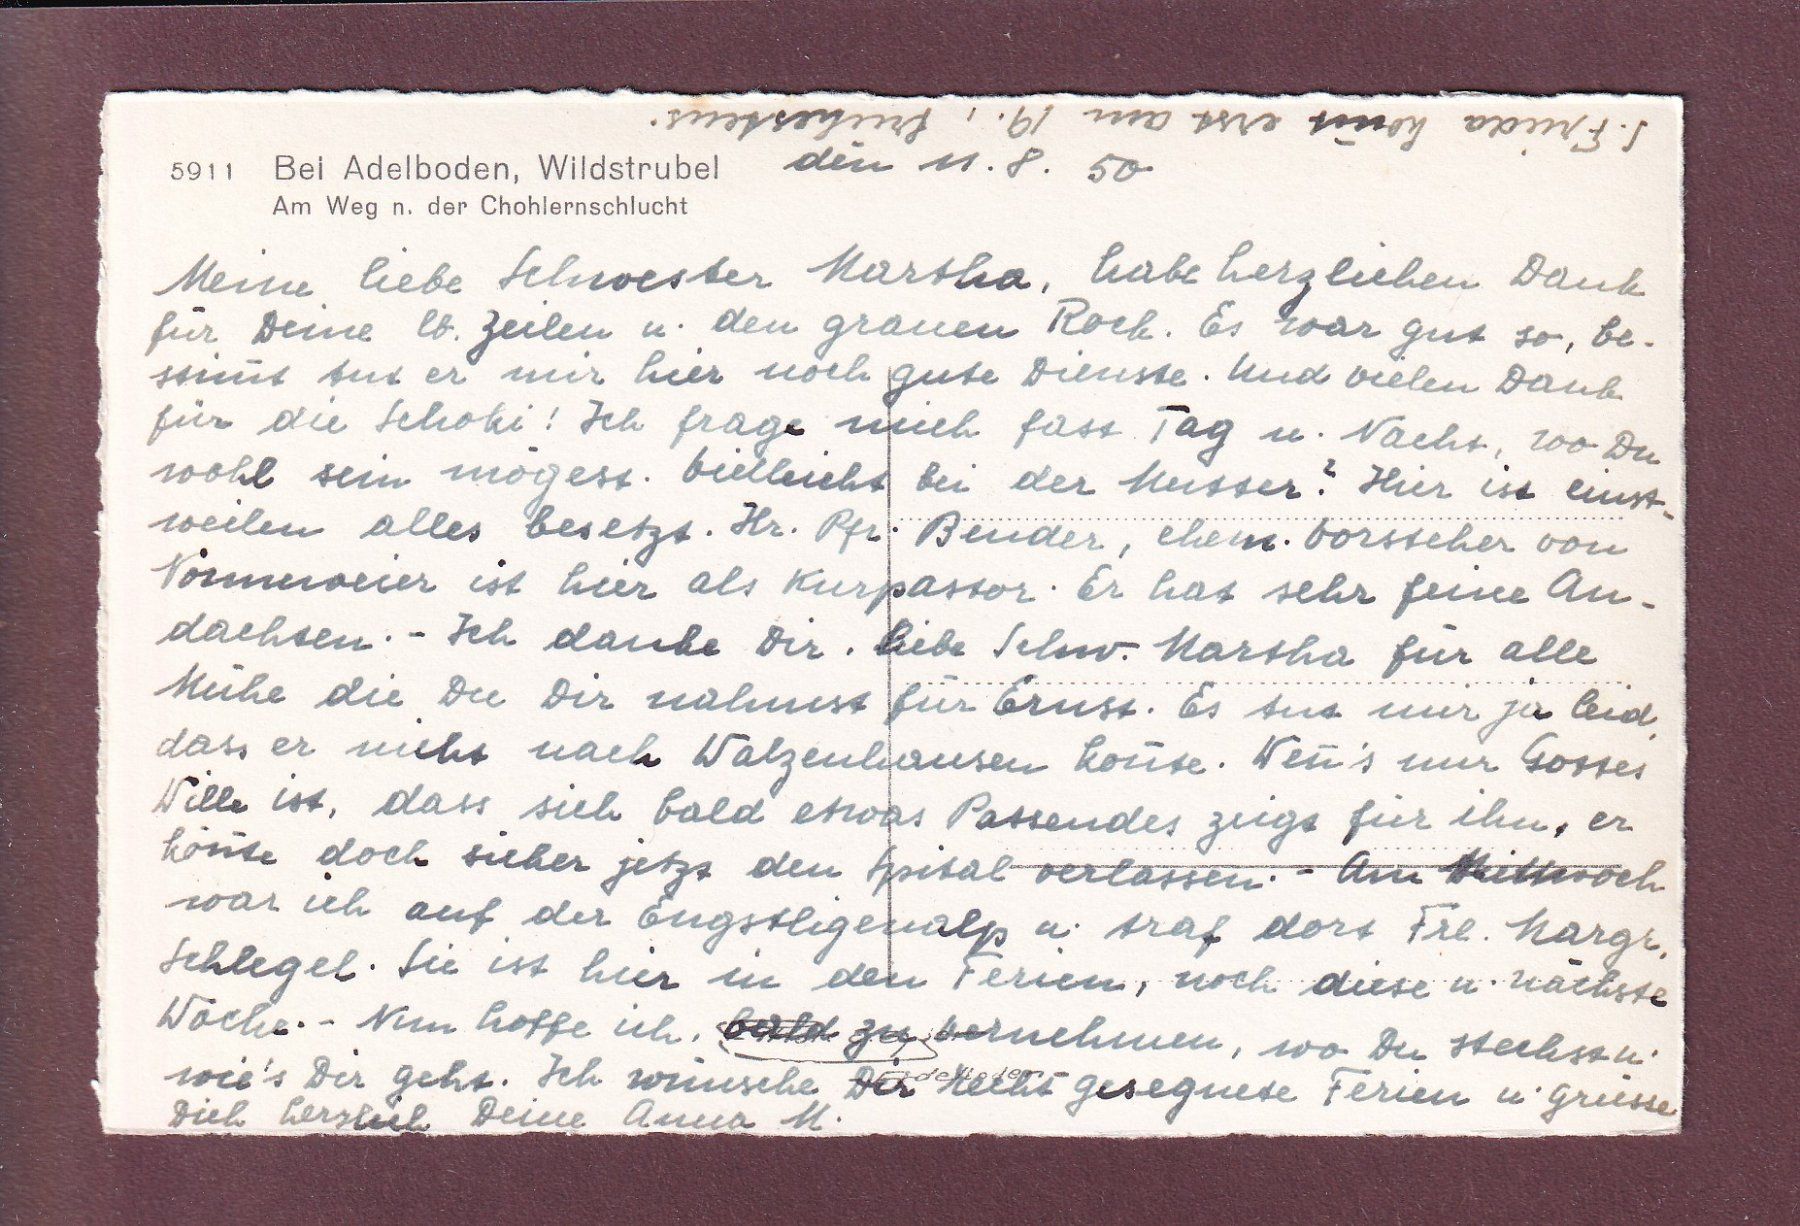 S. Frieda kom̄t erst am 19., frühestens.
5911 Bei Adelboden, Wildstrubel
Am Weg n. der Chohlernschlucht
den 11. 8. 50
Meine liebe Schwester Martha, habe herzlichen Dank
für Deine lb. Zeilen u. den grauen Rock. Es war gut so, be-
stim̄t tut er mir hier noch gute Dienste. Und vielen Dank
für die Schoki! Ich frage mich fast Tag u. Nacht, wo Du
wohl sein mögest. Vielleicht bei der Mutter? Hier ist einst-
weilen alles besetzt. Hr. Pfr. Bender, ehem. Vorsteher von
Nonnenweier ist hier als Kurpastor. Er hat sehr feine An-
dachten. - Ich danke Dir, liebe Schw. Martha für alle
Mühe die Du Dir nahmst für Ernst. Es tut mir ja leid,
dass er nicht nach Walzenhausen kon̄te. Wen̄'s nur Gottes
Wille ist, dass sich bald etwas Passendes zeigt für ihn, er
kön̄te doch sicher jetzt den Spital verlassen. - Am Mittwoch
war ich auf der Engstligenalp u. traf dort Frl. Margr.
Schlegel. Sie ist hier in den Ferien, noch diese u. nächste
Woche. - Nun hoffe ich, bald zu vernehmen, wo Du steckst u.
wie's Dir geht. Ich wünsche Dir recht gesegnete Ferien u. grüsse
Dich herzlich Deine Anna M.